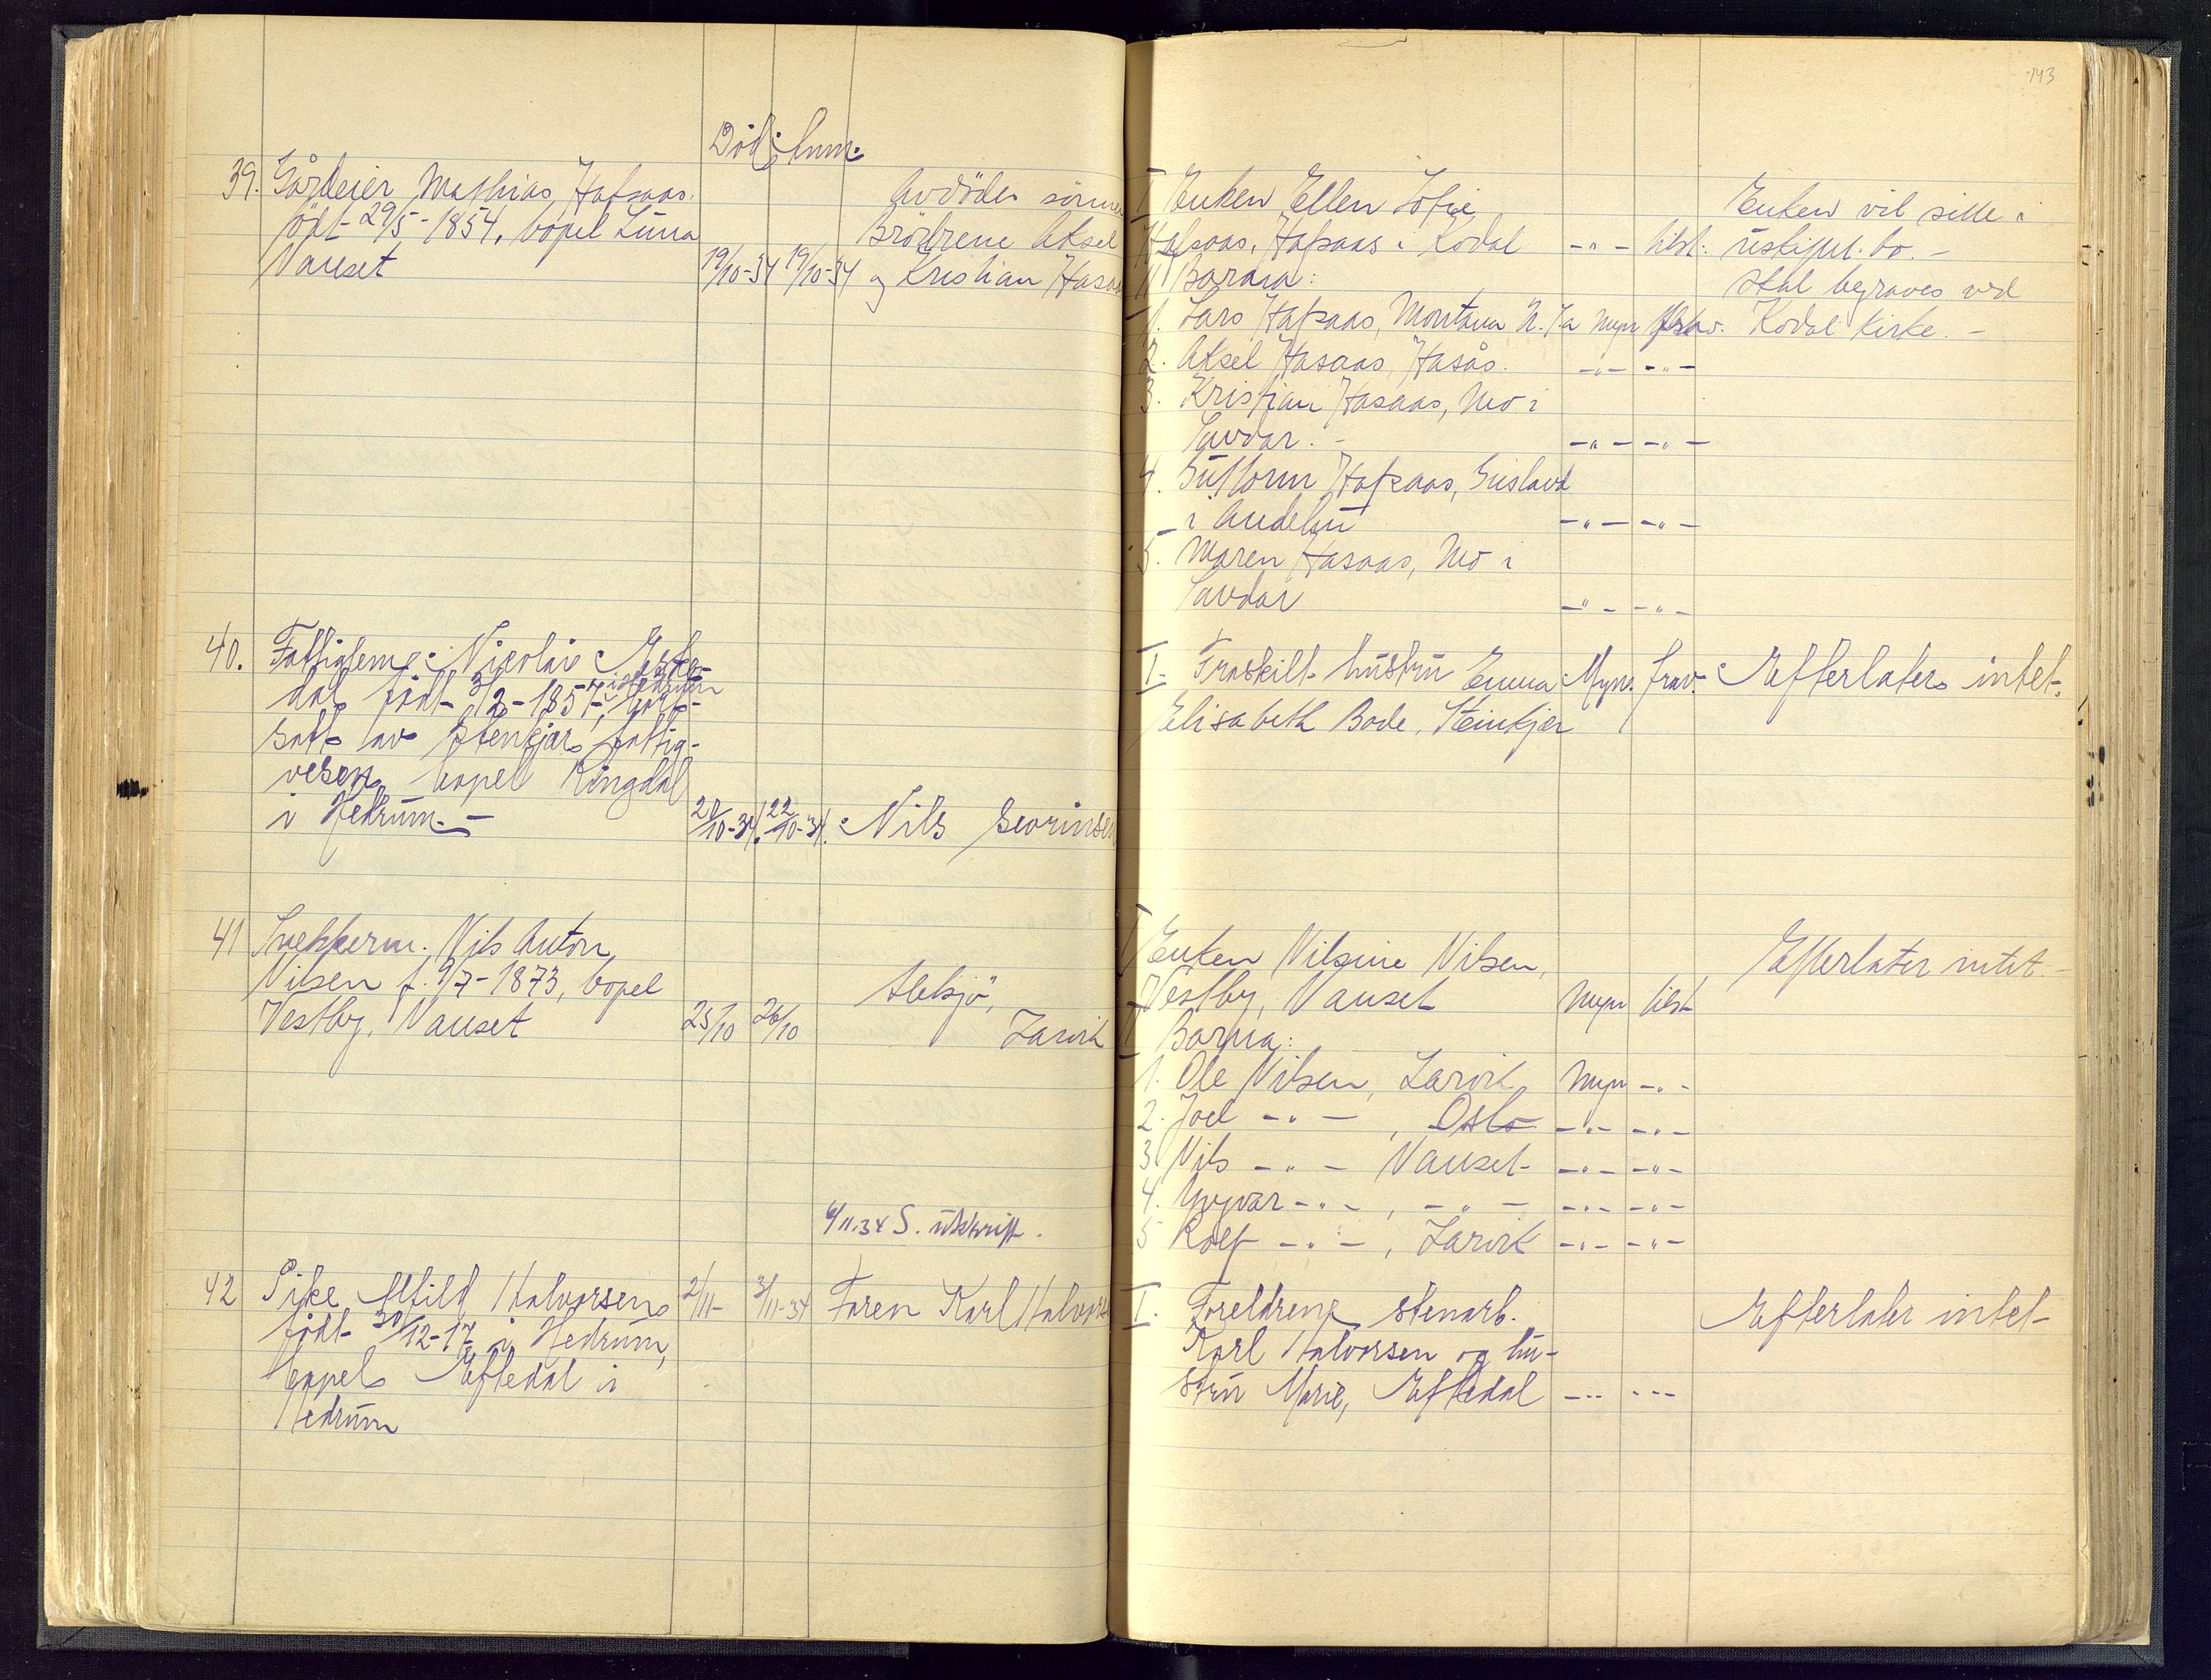 143
Död: Anm.
39. Gårdeier Mathias Hafsaas.
födt 29/5-1854, bopel Lunn
Nanset
19/10-34 19/10-34
Avdödes sönner
Brödrene Aksel
og Kristian Hasaas
I Enken Ellen Sofie
Hafsaas, Hafsaas i Kodal -"- tilst.
II Barna:
1. Lars Hafsaas, Montana U.S.a Myn frav.
2. Aksel Hasaas, Hasås. -"- -"-
3. Kristian Hasaas, Mo i
Sandar. -"- -"-
4. Guttorm Hafsaas,
i Andebu -"- -"-
5. Maren Hasaas, Mo i
Sandar -"- -"-
Enken vil sitte i
uskiftet bo. -
Skal begraves ved
Kodal Kirke. -
40. Fattiglem Nicolai
dal født 3/2-1857, i Hedrum
satt av Stenkjær fattig-
vesen, bopel Ringdal
i Hedrum. -
22/10-34. Nils Severinsen
I. Fraskilt hustru Emma Myn. frav.
Elisabeth Bode, Steinkjer
Efterlater intet.
41 Snekkerm. Nils Anton
Nilsen f. 9/7-1873, bopel
Vestby, Nanset
25/10 26/10
Larvik
I Enken Nilsine Nilsen,
Vestby, Nanset Myn tilst
II Barna:
1. Ole Nilsen, Larvik Myn -"-
2. Joel -"-, Oslo -"- -"-
3 Nils -"- Nanset -"- -"-
4. Yngvar -"-, -"- -"- -"-
5 Rolf -"-, Larvik -"- -"-
Efterlater intet. -
6/11.34 S. utskrift.
42 Pike Alfild Halvorsen
født 30/12-17 i Hedrum,
bopel Eftedal i
Hedrum
2/11- 3/11-34 Faren Karl Halvorsen
I. Foreldrene stenarb.
Karl Halvorsen og hu-
stru Marie, Eftedal -"- -"-
Efterlater intet